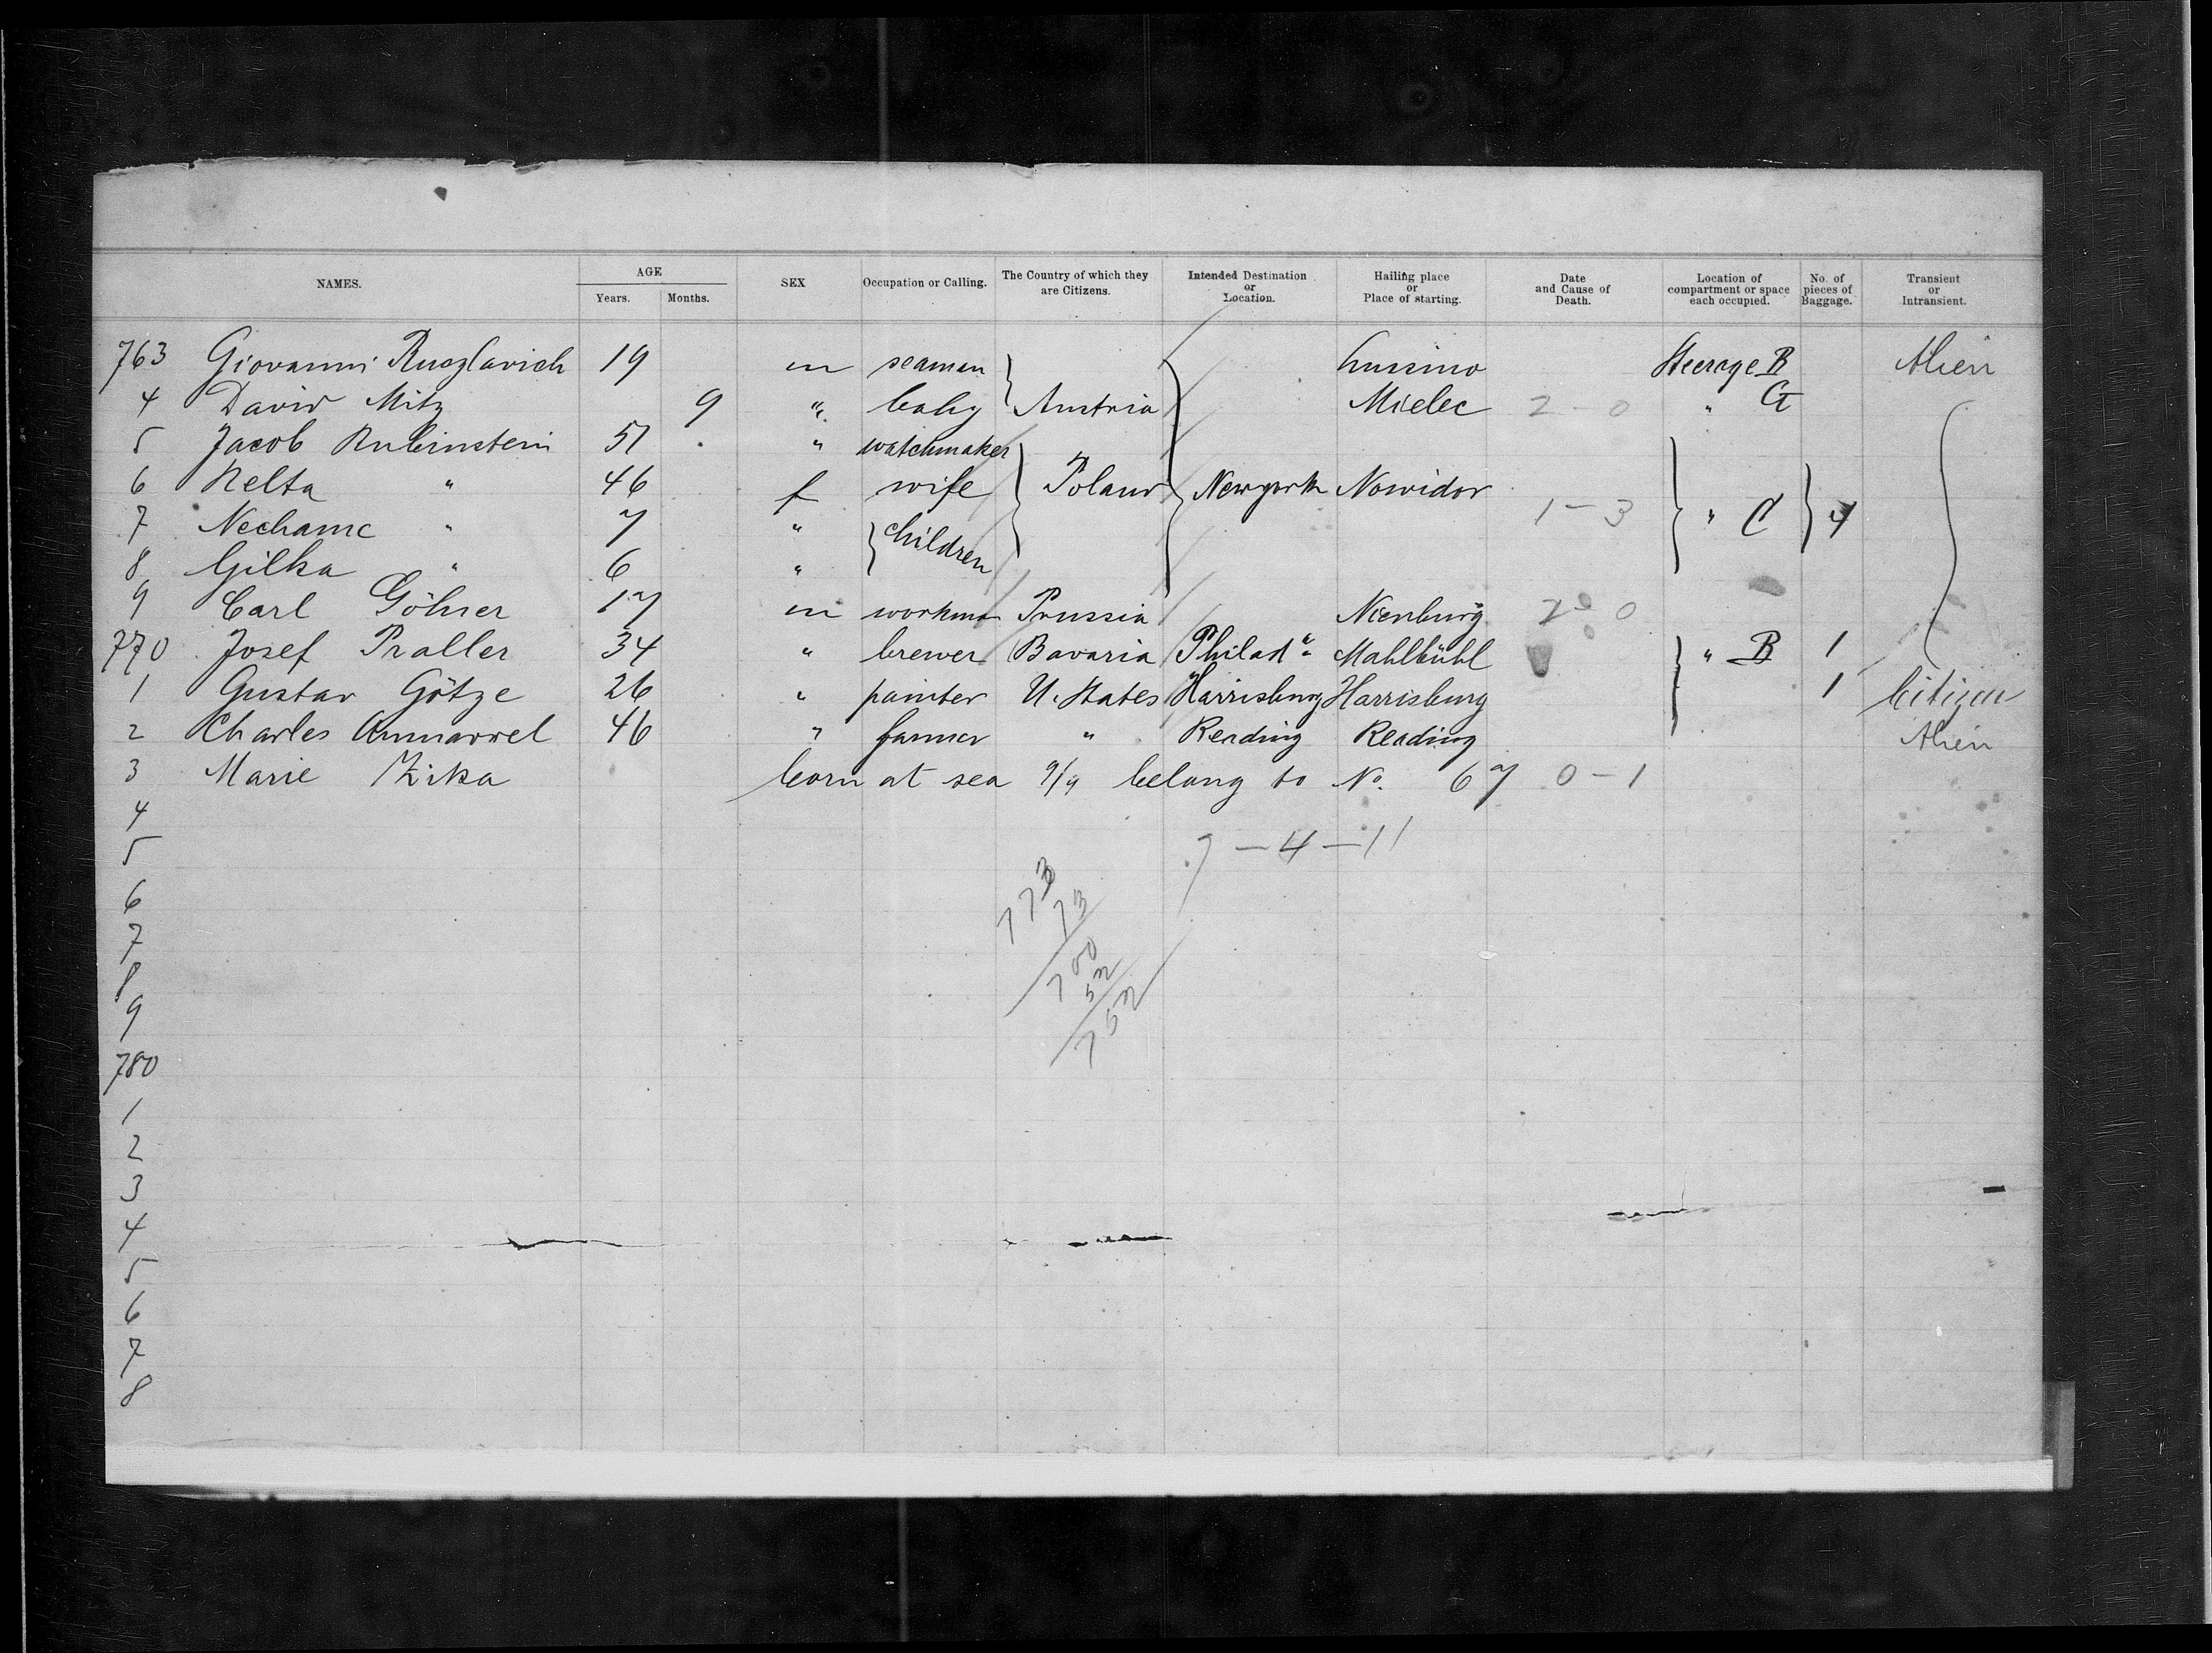 NAMES. AGE Years. Months. SEX Occupation or Calling. The Country of which they are Citizens. Intended Destination or Location. Hailing place or Place of starting. Date and Cause of Death. Location of compartment or space each occupied. No. of pieces of Baggage. Transient or Intransient.
763 Giovanni 19 m seaman Lussino Steerage B Alien
4 David Mitz 9 " baby Austria Mielec 2-0 " G
5 Jacob Rubinstein 51 " watchmaker
6 Relta " 46 f wife Poland Newyork Nowidor
7 Nechame " 7 " children 1-3 " C 4
8 Gilka " 6 "
9 Carl Göhner 17 m workman Prussia Nienburg 2-0
770 Josef Praller 34 " brewer Bavaria Philada Mahlbühl " B 1
1 Gustav Götze 26 " painter U. States Harrisburg Harrisburg 1 Citizen
2 Charles 46 " farmer " Reading Reading Alien
3 Marie Zika born at sea 9/4 belong to No. 67 0-1
4
5 7-4-11
6 773
7 73
8 700
9 52
780 752
1
2
3
4
5
6
7
8